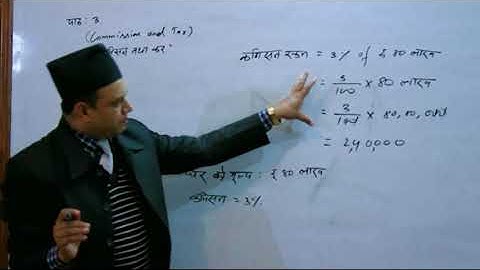 पाठ: 3
(Commission and Tax)
तथा कर
कमिसन रकम = 3% of रु 80 लाख
= 3/100 × 80 लाख
= 3/100 × 80,00,000
= 2,40,000
को मूल्य : रु 80 लाख
कमिसन = 3%